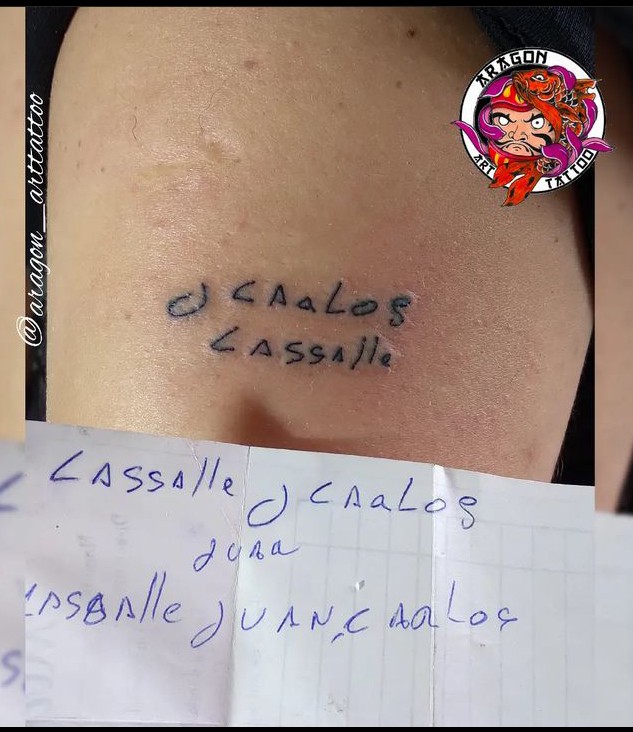 @aragon_arttattoo
ARAGON
ART TATTOO
J CARLOS
CASSAlle
CASSAlle J CARLOS
JUAN
CASSAlle JUAN, CARLOS